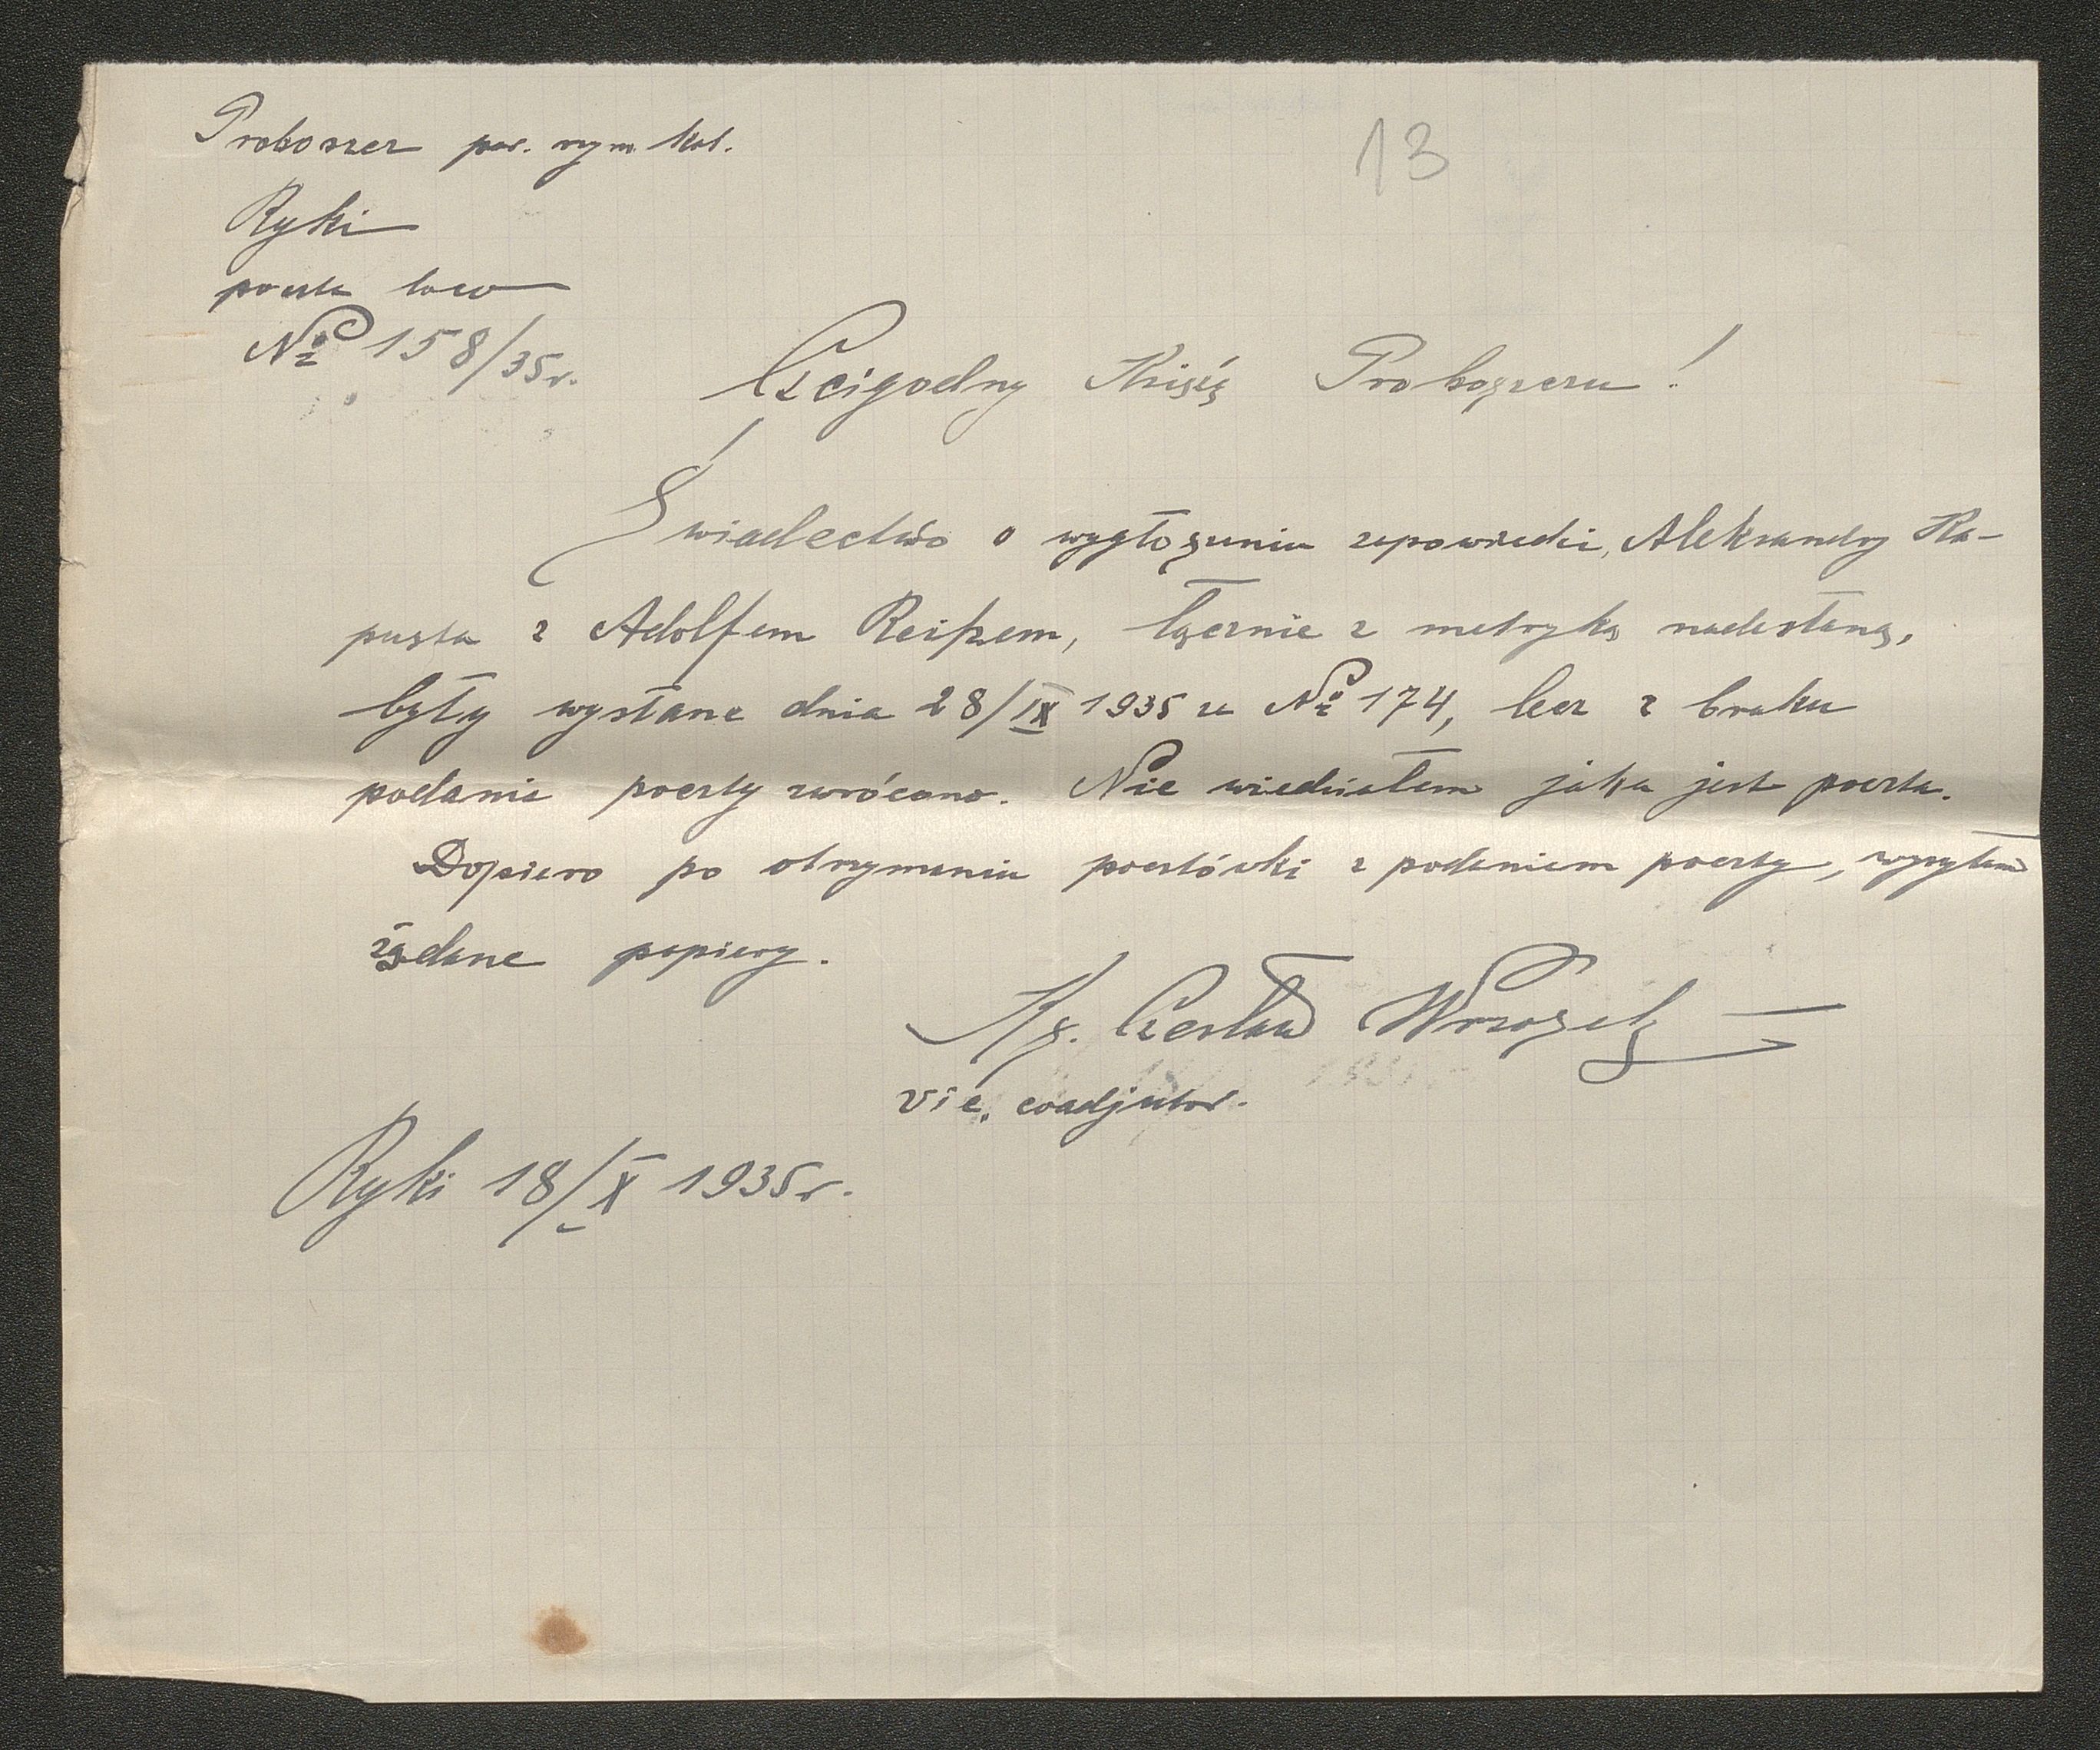 Proboszcz par. rzym. kat.
13
Ryki
poczta loco
№ 158/35 r.
Czcigodny Księżę Proboszczu!
Świadectwo o wygłoszeniu zapowiedzi, Aleksandry Ka-
pusta z Adolfem Reißem, łącznie z metryką nadesłaną,
były wysłane dnia 28/IX 1935 za № 174, lecz z braku
podania poczty zwrócono. Nie wiedziałem jaka jest poczta.
Dopiero po otrzymaniu pocztówki z podaniem poczty, wysyłam
żądane papiery.
Ks. Czesław Wrzosek
vic. coadjutor.
Ryki 18/X 1935 r.